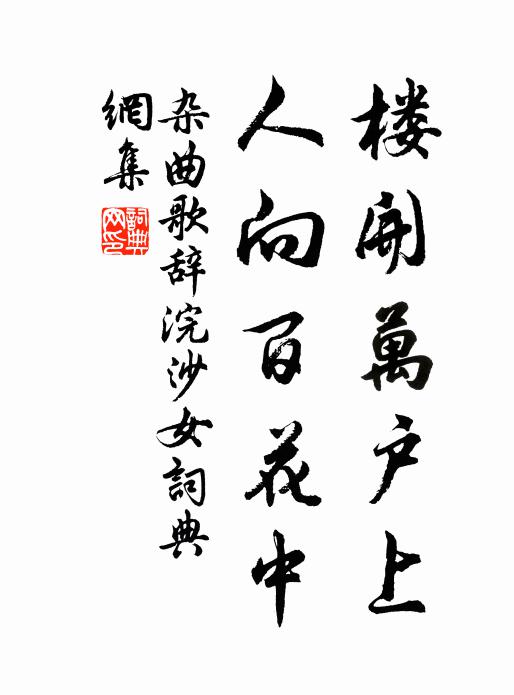 楼開萬户上
人向百花中
杂曲歌辞浣沙女詞典
網集
詞典网印